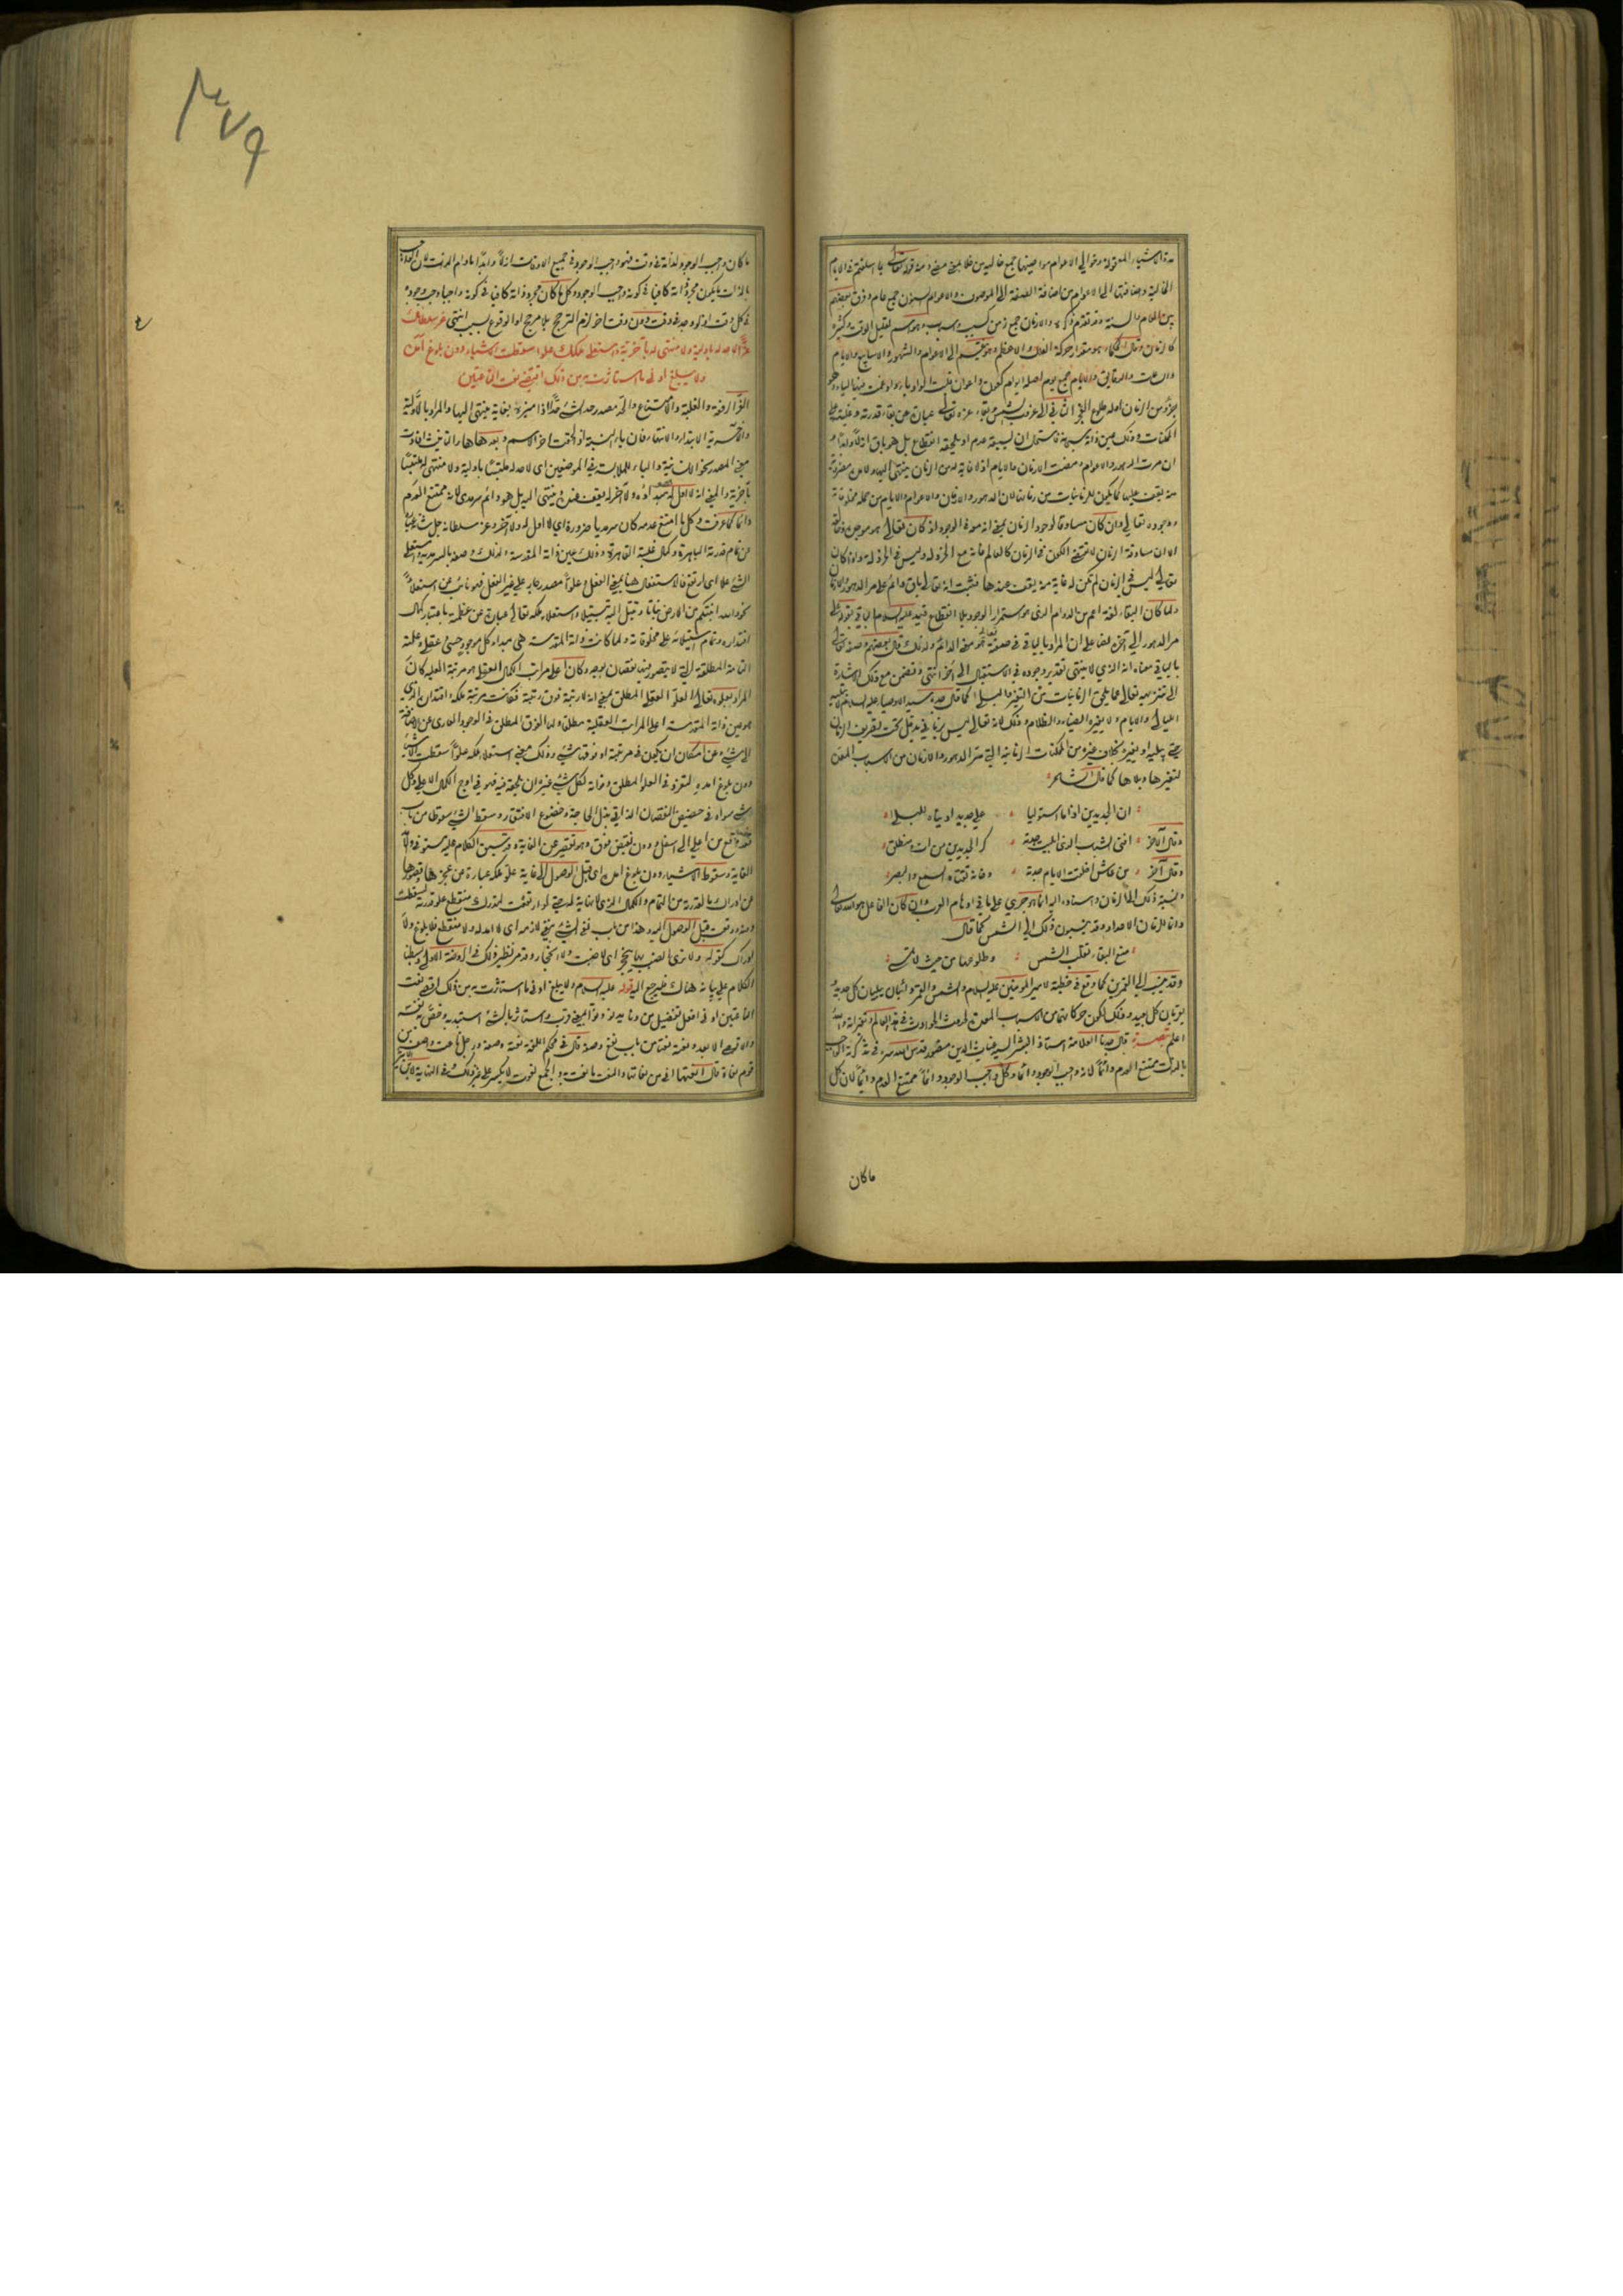 مدة الاشياء المعقولة وخوالي الاعوام مواضيها جمع خالية من خلا بمعنى مضى ومنه قوله تعالى بما اسلفتم في الايام
الخالية واضافتها الى الاعوام من اضافة الصفة الى الموصوف والاعوام كسنون جمع عام وفرق بعضهم
بين العام والسنة وقد تقدم ذكره والازمان جمع زمن كسبب واسباب وهو اسم لقليل الوقت وكثيره
كالزمان وقال الحكماء هو مقدار حركة الفلك الاعظم وهو ينقسم الى الاعوام والشهور والاسابيع والايام
والساعات والدقايق والايام جمع يوم اصله ايوام كعون واعوان قلبت الواو ياء وادغمت فيها الياء وهو
جزؤ من الزمان اوله طلوع الفجر الثاني الى غروب الشمس وبقاء عزه تعالى عبارة عن بقاء قدرته وغلبته على
الممكنات وذلك عين ذاته سبحانه فاستحال ان يسبقه عدم او يلحقه انقطاع بل هو باق ازلا وابدا و
ان مرت الدهور والاعوام ومضت الازمان والايام اذ لا غاية له من الزمان ينتهي اليها ولا مدة مضروبة
له يقف عليها كما يكون للزمانيات من زماننا لان الدهور والازمان والاعوام والايام من جملة مخلوقاته
ووجوده تعالى وان كان مساوقا لوجود الزمان بمعنى انه معه في الوجود اذ كان تعالى هو موجده وخالقه
الا ان مساوقة الزمان لا تقتضي الكون في الزمان كالعالم فانه مع الخردلة وليس في الخردلة واذا كان
تعالى ليس في الزمان لم تكن له غاية منه يقف عندها فثبت انه تعالى باق دائم على مر الدهور والازمان
ولما كان البقاء لغة اعم من الدوام الذي هو استمرار الوجود بلا انقطاع قيد عليه السلام الباقي بقوله على
مر الدهور الى آخره نصا على ان المراد بالباقي في صفته تعالى هو معنى الدائم ولذلك قال بعضهم وصفه تعالى
بالباقي معناه انه الذي لا ينتهي تقدير وجوده في الاستقبال الى آخر انتهى وتضمن مع ذلك الاشارة
الى تنزيهه تعالى عما يلحق الزمانيات من التغير والبلى كما قال جده سيد الاوصياء عليه السلام لا تبليه
الليالي والايام ولا يغيره الضياء والظلام وذلك لانه تعالى ليس بزماني فيدخل تحت تصريف الزمان
حتى يبليه او يغيره بخلاف غيره من الممكنات الزمانية التي مر الدهور والازمان من الاسباب المعدة
لتغيرها وبلاها كما قال الشاعر
ان الجديدين اذا ما استوليا على جديد ادنياه للبلى
وقال الآخر افنى الشباب الذي ابليت جدته كر الجديدين من آت ومنطلق
وقال آخر من عاش اخلقت الايام جدته وخانه ثقتاه السمع والبصر
ونسبة ذلك الى الزمان واسناده اليه انما هو جري على ما في اوهام العرب وان كان الفاعل هو الله تعالى
وانما للزمان الاعداد وقد ينسبون ذلك الى الشمس كما قال
منع البقاء تقلب الشمس وطلوعها من حيث لا تمسي
وقد ينسب الى القمرين كما وقع في خطبة لامير المؤمنين عليه السلام والشمس والقمر دائبان يبليان كل جديد و
يقربان كل بعيد وذلك لكون حركاتهما من الاسباب المعدة لحدوث الحوادث في هذا العالم وتغيراته والله
اعلم تبصرة قال جدنا العلامة استاذ البشر السيد غياث الدين منصور قدس الله سره في تذكرته الواجب
بالذات ممتنع العدم دائما لانه واجب الوجود دائما وكل واجب الوجود دائما ممتنع العدم دائما لان كل
ما كان
٣٧٩
ما كان واجب الوجود لذاته في وقت فهو واجب الوجود في جميع الاوقات ازلا وابدا مادام الوقت لان الواجب
بالذات يكون مجرد ذاته كافيا في كونه واجب الوجود وكل ما كان مجرد ذاته كافيا في كونه واجبا وجب وجوده
في كل وقت اذ لو وجد في وقت دون وقت آخر لزم الترجيح بلا مرجح او الوقوع بسبب انتهى عز سلطانك
عزا لا حد له باولية ولا منتهى له بآخرية واستعلى ملكك علوا سقطت الاشياء دون بلوغ امده
ولا يبلغ ادنى ما استأثرت به من ذلك اقصى نعت الناعتين
العز الرفعة والغلبة والامتناع والحد مصدر حد الشيء حدا اذا ميزه بغاية ينتهي اليها والمراد بالاولية
والآخرية الابتداء والانتهاء فان ياء النسبة اذا لحقت آخر الاسم وبعدها هاء التانيث افادت
معنى المصدر نحو الانسانية والباء للملابسة في الموضعين اي لا حد له ملتبسا باولية ولا منتهى له ملتبسا
بآخرية والمعنى انه لا اول له هو مبدأه ولا آخر له يقف عنده وينتهي اليه بل هو دائم سرمدي لانه ممتنع العدم
دائما كما عرفت وكل ما امتنع عدمه كان سرمديا ضرورة اي لا اول له ولا آخر وعز سلطانه جل شانه عبارة
عن تمام قدرته الباهرة وكمال غلبته القاهرة وذلك عين ذاته المقدسة ولذلك وصفه بالسرمدية واستعلى
الشيء علا اي ارتفع فالاستفعال هنا بمعنى الفعل وعلوا مصدر جار على غير الفعل فهو نائب عن استعلاء
نحو والله انبتكم من الارض نباتا وتبتل اليه تبتيلا واستعلاء ملكه تعالى عبارة عن عظمته باعتبار كمال
اقتداره وتمام استيلائه على مخلوقاته ولما كانت ذاته المقدسة هي مبدا كل موجود حسي وعقلي وعلته
التامة المطلقة التي لا يتصور فيها نقصان بوجه وكان اعلى مراتب الكمال العقلي هو مرتبة العلية كان
المراد بعلوه تعالى العلو العقلي المطلق بمعنى انه لا رتبة فوق رتبته فكانت مرتبة ملكه اقتداره الذي
هو عين ذاته المقدسة اعلى المراتب العقلية مطلقا وله الفوق المطلق في الوجود العاري عن الاضافة
الى شيء وعن امكان ان يكون في مرتبته او فوقها شيء وذلك معنى استعلاء ملكه علوا سقطت الاشياء
دون بلوغ امده لتفرده في العلو المطلق وفاته لكل شيء غيره ان يلحقه فيه فهو في اوج الكمال الاعلى وكل
شيء سواه في حضيض النقصان الذاتي بذل الحاجة وخضوع الافتقار وسقط الشيء سقوطا من باب
قعد وقع من اعلى الى اسفل ودون نقيض فوق وهو تقصير عن الغاية وقد سبق الكلام عليه مستوفى والامد
الغاية وسقوط الاشياء دون بلوغ امده اي قبل الوصول الى غاية علو ملكه عبارة عن عجزها وقصورها
عن ادراك ما لقدرته من التمام والكمال الذي لا نهاية له حتى لو ارتفعت لتدرك منقطع علو قدرته لسقطت
دونه ووقفت قبل الوصول اليه وهذا من باب نفي الشيء بنفي لازمه اي لا امد له ولا منقطع فلا بلوغ ولا
ادراك كقوله ولا ترى الضب بها ينجحر اي لا ضب ولا انجحار وقد مر نظير ذلك في الروضة الاولى وبسطنا
الكلام على بيانه هناك فليرجع اليه قوله عليه السلام ولا يبلغ ادنى ما استأثرت به من ذلك اقصى نعت
الناعتين ادنى افعل تفضيل من دنا يدنو دنوا بمعنى قرب واستأثر بالشيء استبد به وخص به نفسه
والاقصى الابعد ونعته نعتا من باب نفع وصفه قال في محكم اللغة نعته وصفه ورجل ناعت وناعتين من
قوم نعاة قال الشاعر انعتها اني من نعاتها والنعت ما نعت به والجمع نعوت لا يكسر على غير ذلك وفي النهاية لابن الاثير